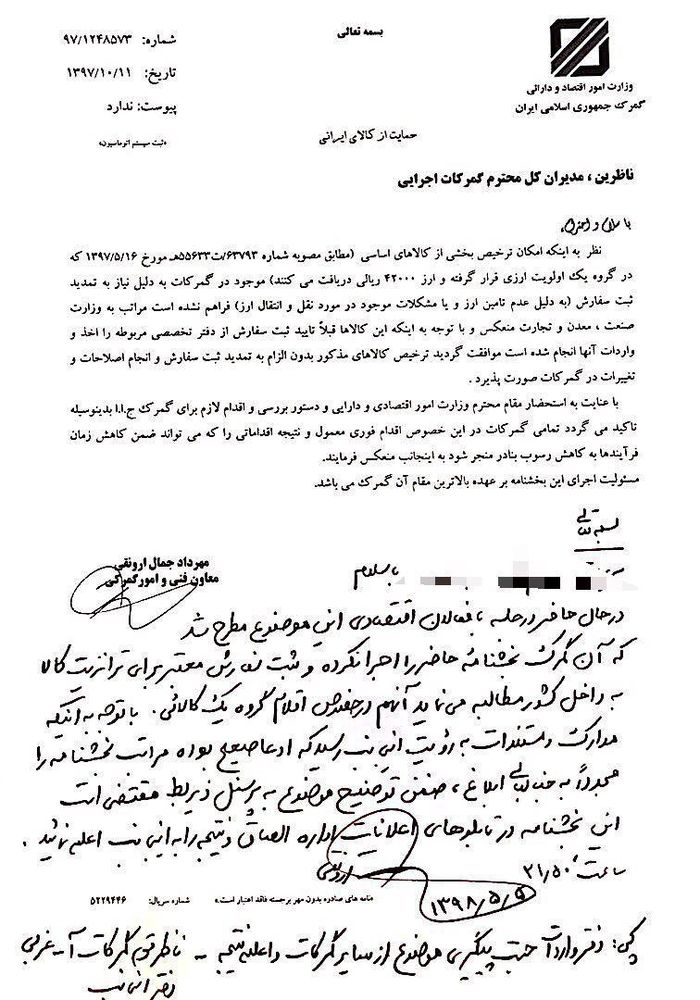 بسمه تعالی
شماره: ۹۷/۱۲۴۸۵۷۳
تاریخ: ۱۳۹۷/۱۰/۱۱
پیوست: ندارد
«ثبت سیستم اتوماسیون»
وزارت امور اقتصاد و دارائی
گمرک جمهوری اسلامی ایران
حمایت از کالای ایرانی
ناظرین ، مدیران کل محترم گمرکات اجرایی
با سلام و احترام؛
نظر به اینکه امکان ترخیص بخشی از کالاهای اساسی (مطابق مصوبه شماره ۶۳۷۹۳/ت۵۵۶۳۳هـ مورخ ۱۳۹۷/۵/۱۶ که
در گروه یک اولویت ارزی قرار گرفته و ارز ۴۲۰۰۰ ریالی دریافت می کنند) موجود در گمرکات به دلیل نیاز به تمدید
ثبت سفارش (به دلیل عدم تامین ارز و یا مشکلات موجود در مورد نقل و انتقال ارز) فراهم نشده است مراتب به وزارت
صنعت ، معدن و تجارت منعکس و با توجه به اینکه این کالاها قبلاً تایید ثبت سفارش از دفتر تخصصی مربوطه را اخذ و
واردات آنها انجام شده است موافقت گردید ترخیص کالاهای مذکور بدون الزام به تمدید ثبت سفارش و انجام اصلاحات و
تغییرات در گمرکات صورت پذیرد .
با عنایت به استحضار مقام محترم وزارت امور اقتصادی و دارایی و دستور بررسی و اقدام لازم برای گمرک ج.ا.ا بدینوسیله
تاکید می گردد تمامی گمرکات در این خصوص اقدام فوری معمول و نتیجه اقداماتی را که می تواند ضمن کاهش زمان
فرآیندها به کاهش رسوب بنادر منجر شود به اینجانب منعکس فرمایند.
مسئولیت اجرای این بخشنامه بر عهده بالاترین مقام آن گمرک می باشد.
مهرداد جمال ارونقی
معاون فنی و امور گمرکی
بسمه تعالی
با سلام
در حال حاضر در جلسه با فعالان اقتصادی این موضوع مطرح شد
که آن گمرک بخشنامه حاضر را اجرا نکرده و ثبت سفارش معتبر برای ترانزیت کالا
به داخل کشور مطالبه می نماید آنهم در خصوص اقلام گروه یک کالائی . با توجه به اینکه
مدارک و مستندات به رؤیت اینجانب رسید که ادعا صحیح بوده مراتب بخشنامه را
مجدداً به جنابعالی ابلاغ ، ضمن توضیح موضوع به پرسنل ذیربط مقتضی است
این بخشنامه در تابلوهای اعلانات اداره الصاق و نتیجه را به اینجانب اعلام نمائید .
ساعت ۲۱,۵۰
ارونقی
۱۳۹۸,۵,۵
نامه های صادره بدون مهر برجسته فاقد اعتبار است.»
شماره سریال: ۵۲۲۹۴۴۶
کپی: دفتر واردات جهت پیگیری موضوع از سایر گمرکات و اعلام نتیجه - ناظر محترم گمرکات آ-غربی
دفتر اینجانب